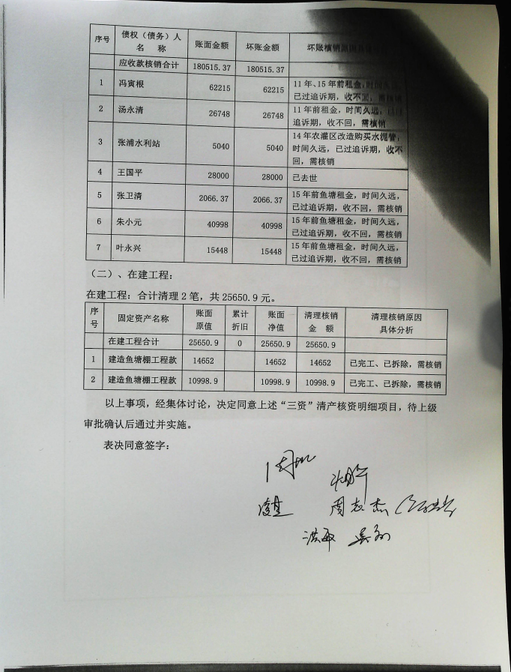 序号 债权（债务）人名 称 账面金额 坏账金额 坏账核销原因
应收款核销合计 180515.37 180515.37
1 冯寅根 62215 62215 11年、15年前租金，时间久远，已过追诉期，收不回，需核销
2 汤永清 26748 26748 11年前租金，时间久远，已过追诉期，收不回，需核销
3 张浦水利站 5040 5040 14年农灌区改造购买水泥管，时间久远，已过追诉期，收不回，需核销
4 王国平 28000 28000 已去世
5 张卫清 2066.37 2066.37 15年前鱼塘租金，时间久远，已过追诉期，收不回，需核销
6 朱小元 40998 40998 15年前鱼塘租金，时间久远，已过追诉期，收不回，需核销
7 叶永兴 15448 15448 15年前鱼塘租金，时间久远，已过追诉期，收不回，需核销
（二）、在建工程：
在建工程：合计清理2笔，共25650.9元。
序号 固定资产名称 账面原值 累计折旧 账面净值 清理核销金 额 清理核销原因具体分析
在建工程合计 25650.9 0 25650.9 25650.9
1 建造鱼塘棚工程款 14652 14652 14652 已完工、已拆除，需核销
2 建造鱼塘棚工程款 10998.9 10998.9 10998.9 已完工、已拆除，需核销
以上事项，经集体讨论，决定同意上述“三资”清产核资明细项目，待上级
审批确认后通过并实施。
表决同意签字：
周志杰